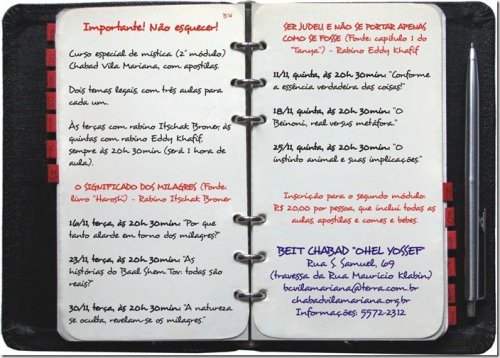 Importante! Não esquecer!
Curso especial de mística (2° módulo)
Chabad Vila Mariana, com apostilas.
Dois temas legais, com três aulas para
cada um.
Às terças com rabino Itschak Broner, às
quintas com rabino Eddy Khafif,
sempre às 20h 30min (será 1 hora de
aula).
O SIGNIFICADO DOS MILAGRES (Fonte:
livro "Haroshi") - Rabino Itschak Broner
16/11, terça, às 20h 30min: "Por que
tanto alarde em torno dos milagres?"
23/11, terça, às 20h 30min: "As
histórias do Baal Shem Tov: todas são
reais?"
30/11, terça, às 20h 30min: "A natureza
se oculta, revelam-se os milagres."
SER JUDEU, E NÃO SE PORTAR APENAS
COMO SE FOSSE (Fonte: capítulo 1 do
"Tanya") - Rabino Eddy Khafif
11/11, quinta, às 20h 30min: "Conforme
a essência verdadeira das coisas!"
18/11, quinta, às 20h 30min: "O
Beinoni, real versus metáfora."
25/11, quinta, às 20h 30min: "O
instinto animal e suas implicações."
Inscrição para o segundo módulo:
R$ 20,00 por pessoa, que inclui todas as
aulas, apostilas e comes e bebes.
BEIT CHABAD "OHEL YOSSEF"
Rua S. Samuel, 69
(travessa da Rua Maurício Klabin)
bcvilamariana@terra.com.br
chabadvilamariana.org.br
Informações: 5572-2312